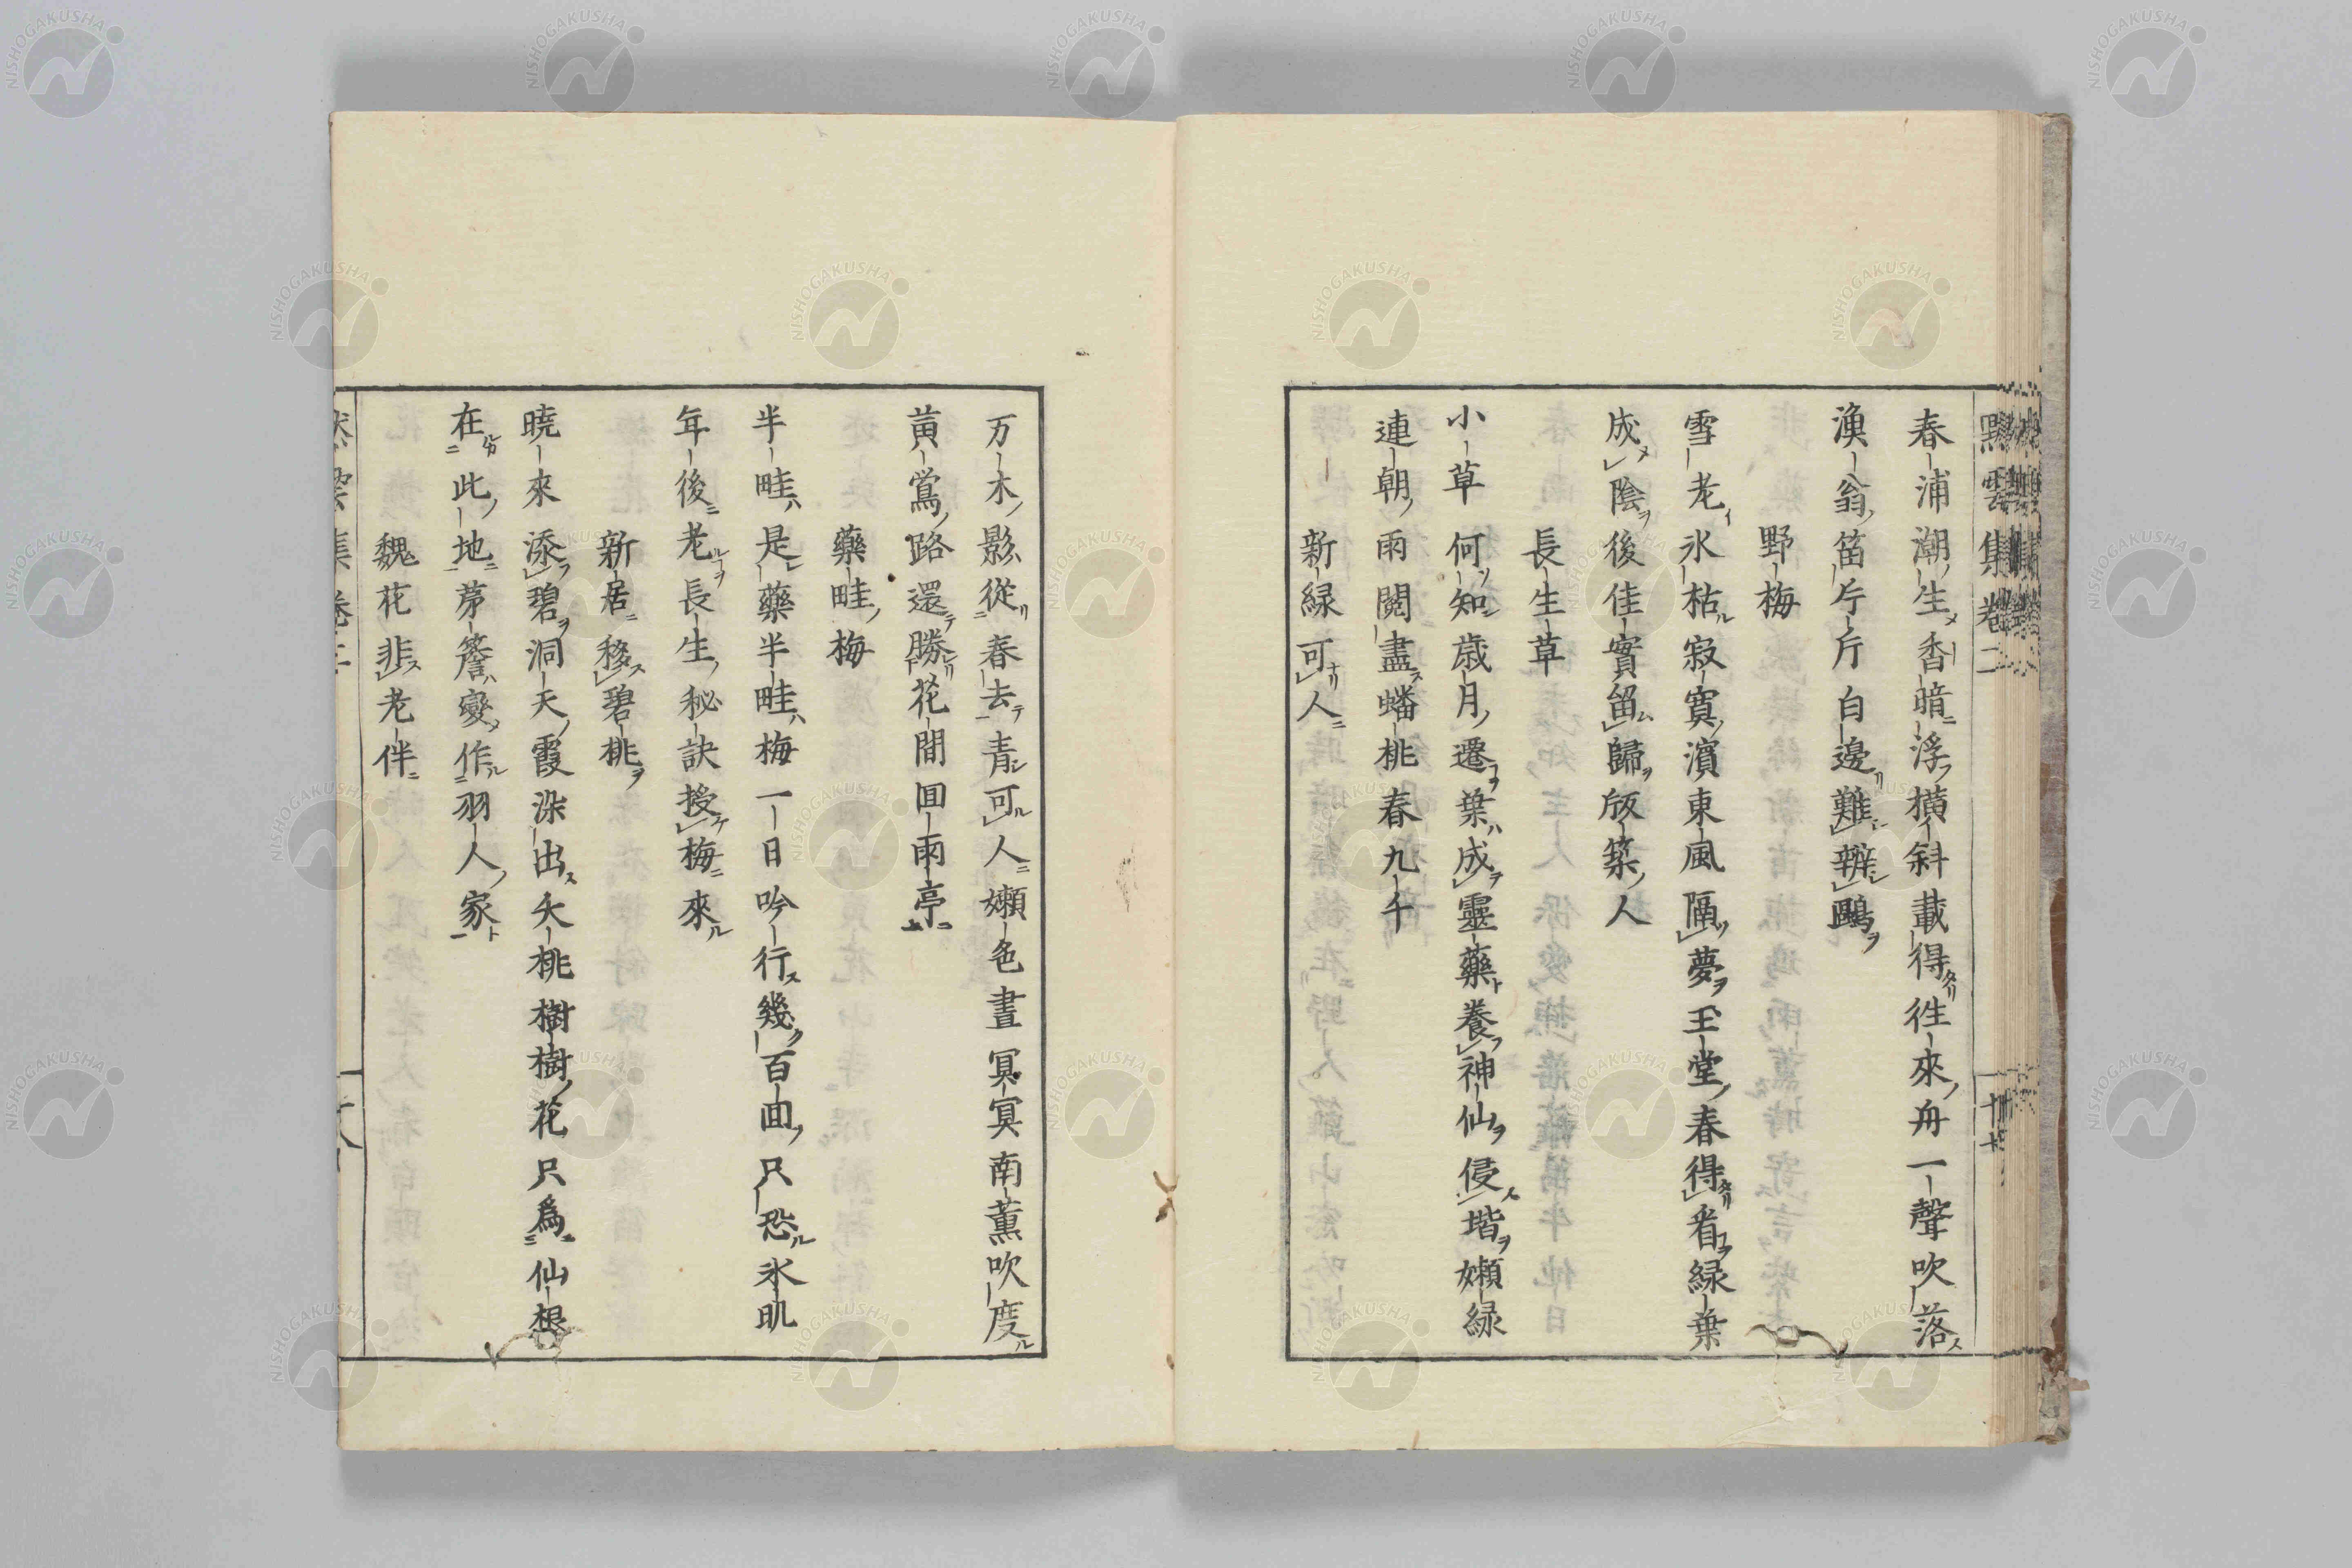 默雲集卷二
春浦潮生香暗浮横斜載得徃來舟一聲吹落
漁翁笛片片白邊難辨鷗
野梅
雪老氷枯寂寞濱東風隔夢玉堂春得看緑葉
成陰後佳實留歸版築人
長生草
小草何知歳月遷葉成靈藥養神仙侵堦嫩緑
連朝雨閲盡蟠桃春九千
新緑可人
万木影從春去青可人嫩色晝冥冥南薫吹度
黄鶯路還勝花間囬雨亭
藥畦梅
半畦是藥半畦梅一日吟行幾百囬只恐氷肌
年後老長生秘訣授梅來
新居移碧桃
曉來添碧洞天霞染出夭桃樹樹花只爲仙根
在此地茅簷變作羽人家
魏花悲老伴
NISHOGAKUSHA